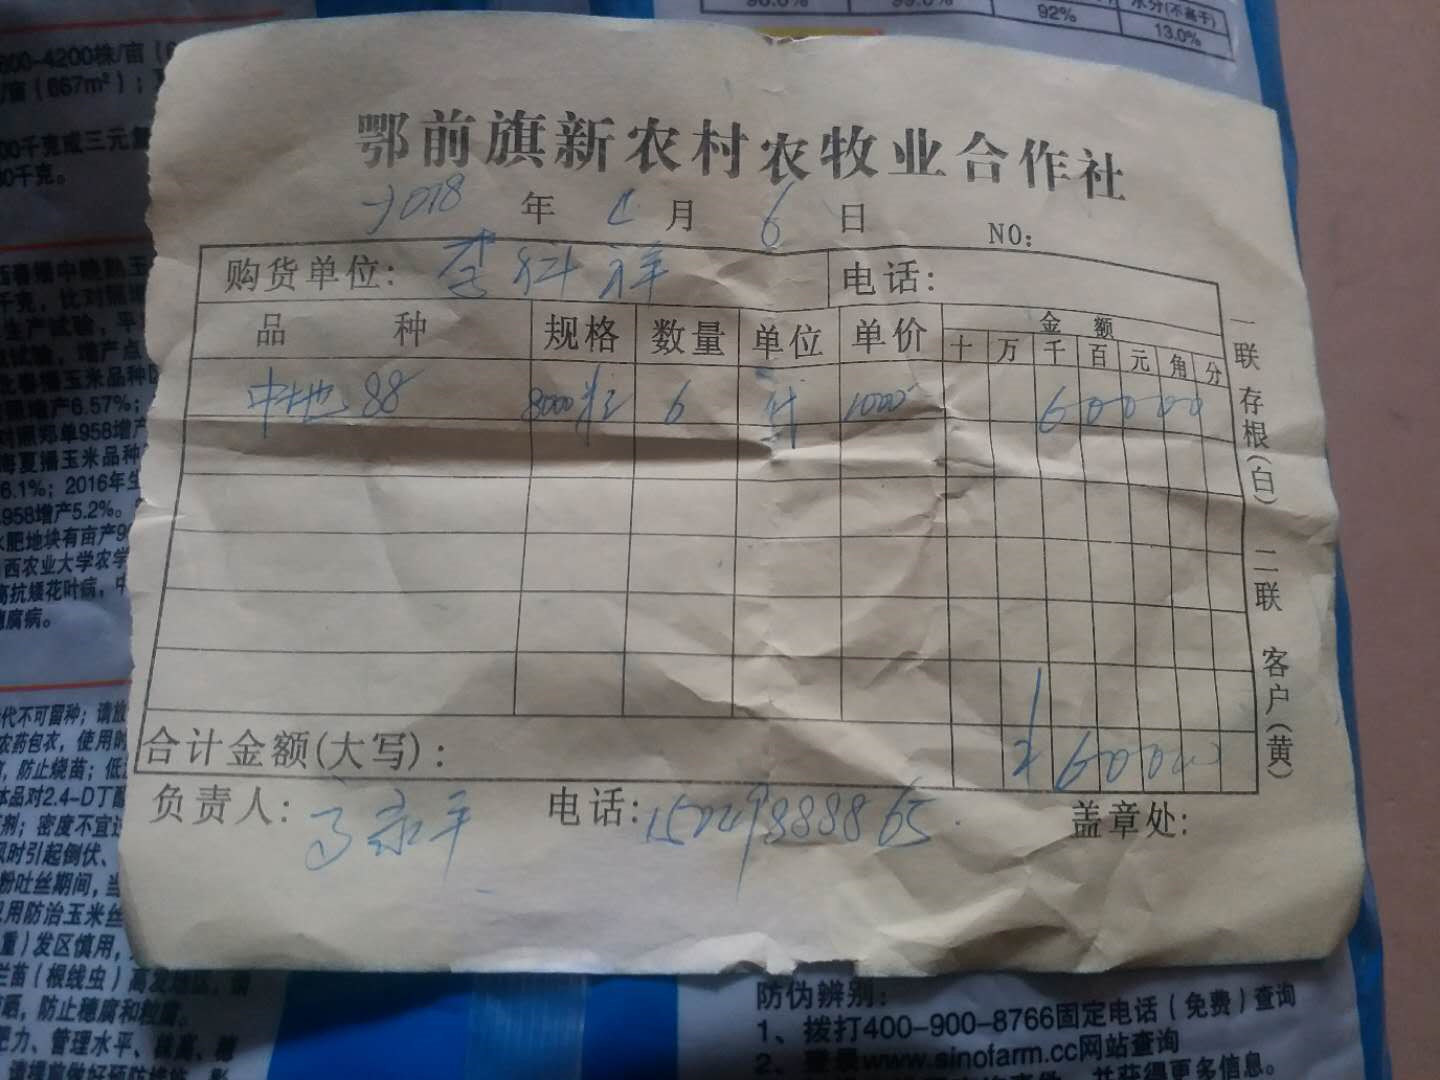 98.0% 99.0% 92% 水分(不高于) 13.0%
800-4200株/亩
/亩（667m²）；
00千克或三元
30千克。
鄂前旗新农村农牧业合作社
2018 年 月 6 日 NO：
购货单位： 李 祥 电话：
品 种 规格 数量 单位 单价 金 额
十 万 千 百 元 角 分
中地 88 8000粒 6 件 1000 6 0 0 0 0 0
合计金额(大写)： ¥ 6 0 0 0 0 0
负责人： 电话：15049888865 盖章处：
一联 存根(白) 二联 客户(黄)
西春播中晚熟玉
千克，比对照增
生产试验，平
试验，增产点
春播玉米品种
增产6.57%；
对照郑单958增产
海夏播玉米品种
6.1%；2016年生
958增产5.2%。
水肥地块有亩产9
西农业大学农学
高抗矮花叶病，中
穗腐病。
代不可留种；请放
农药包衣，使用时
，防止烧苗；低
本品对2.4-D丁酯
剂；密度不宜过
及时引起倒伏、
粉吐丝期间，当
用防治玉米丝
重）发区慎用，
苗（根线虫）高发地区，
晒，防止穗腐和粒腐。
肥力、管理水平、
防伪辨别：
1、拨打400-900-8766固定电话（免费）查询
2、登录www.sinofarm.cc网站查询
并获得更多信息。